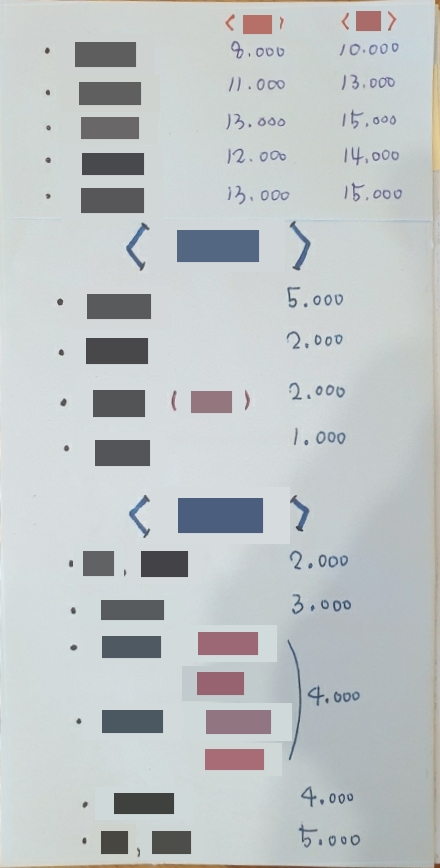 < > < >
• 8.000 10.000
• 11.000 13.000
• 13.000 15.000
• 12.000 14.000
• 13.000 15.000
< >
• 5.000
• 2.000
• ( ) 2.000
• 1.000
< >
• , 2.000
• 3.000
•
• ) 4.000
• 4.000
• , 5.000